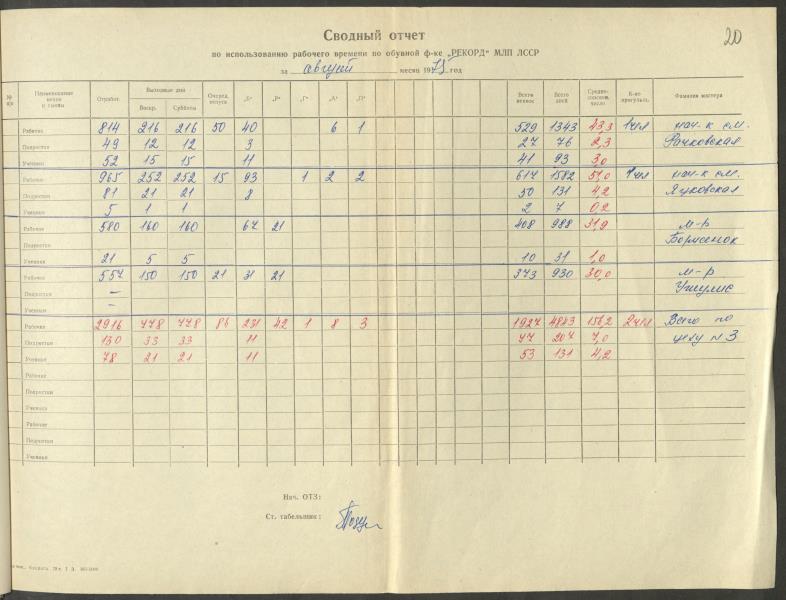 20
Сводный отчет
по использованию рабочего времени по обувной ф-ке „РЕКОРД" МЛП ЛССР
за август месяц 1975 год
№ п/п Наименование цехов и смены Отработ. Выходные дни Воскр. Субботы Очеред. отпуск „Б" „Р" „Г" „А" „П" Всего неявок Всего дней Средне-списочн. число К-во прогульщ. Фамилия мастера
Рабочие 814 216 216 50 40 6 1 529 1343 43,3 1 чел нач-к см.
Подростки 49 12 12 3 27 76 2,3 Рачковская
Ученики 52 15 15 11 41 93 3,0
Рабочие 965 252 252 15 93 1 2 2 617 1582 51,0 1 чел нач-к см.
Подростки 81 21 21 8 50 131 4,2 Яцковская
Ученики 5 1 1 2 7 0,2
Рабочие 580 160 160 67 21 408 988 31,9 м-р
Подростки Борисенок
Ученики 21 5 5 10 31 1,0
Рабочие 557 150 150 21 31 21 373 930 30,0 м-р
Подростки –
Ученики –
Рабочие 2916 778 778 86 231 42 1 8 3 1927 4843 156,2 2 чел Всего по
Подростки 130 33 33 11 77 207 7,0 цеху № 3
Ученики 78 21 21 11 53 131 4,2
Рабочие
Подростки
Ученики
Рабочие
Подростки
Ученики
Нач. ОТЗ:
Ст. табельщик: